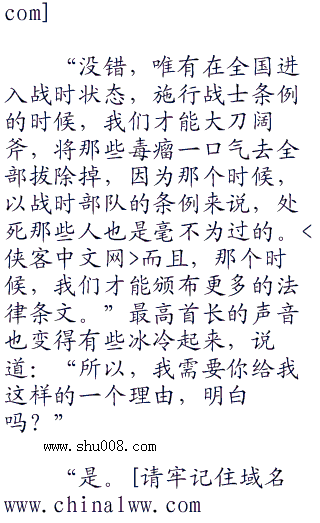 com]
“没错，唯有在全国进
入战时状态，施行战士条例
的时候，我们才能大刀阔
斧，将那些毒瘤一口气去全
部拔除掉，因为那个时候，
以战时部队的条例来说，处
死那些人也是毫不为过的。<
侠客中文网>而且，那个时
候，我们才能颁布更多的法
律条文。”最高首长的声音
也变得有些冰冷起来，说
道：“所以，我需要你给我
这样的一个理由，明白
吗？”
www.shu008.com
“是。[请牢记住域名
www.china1ww.com